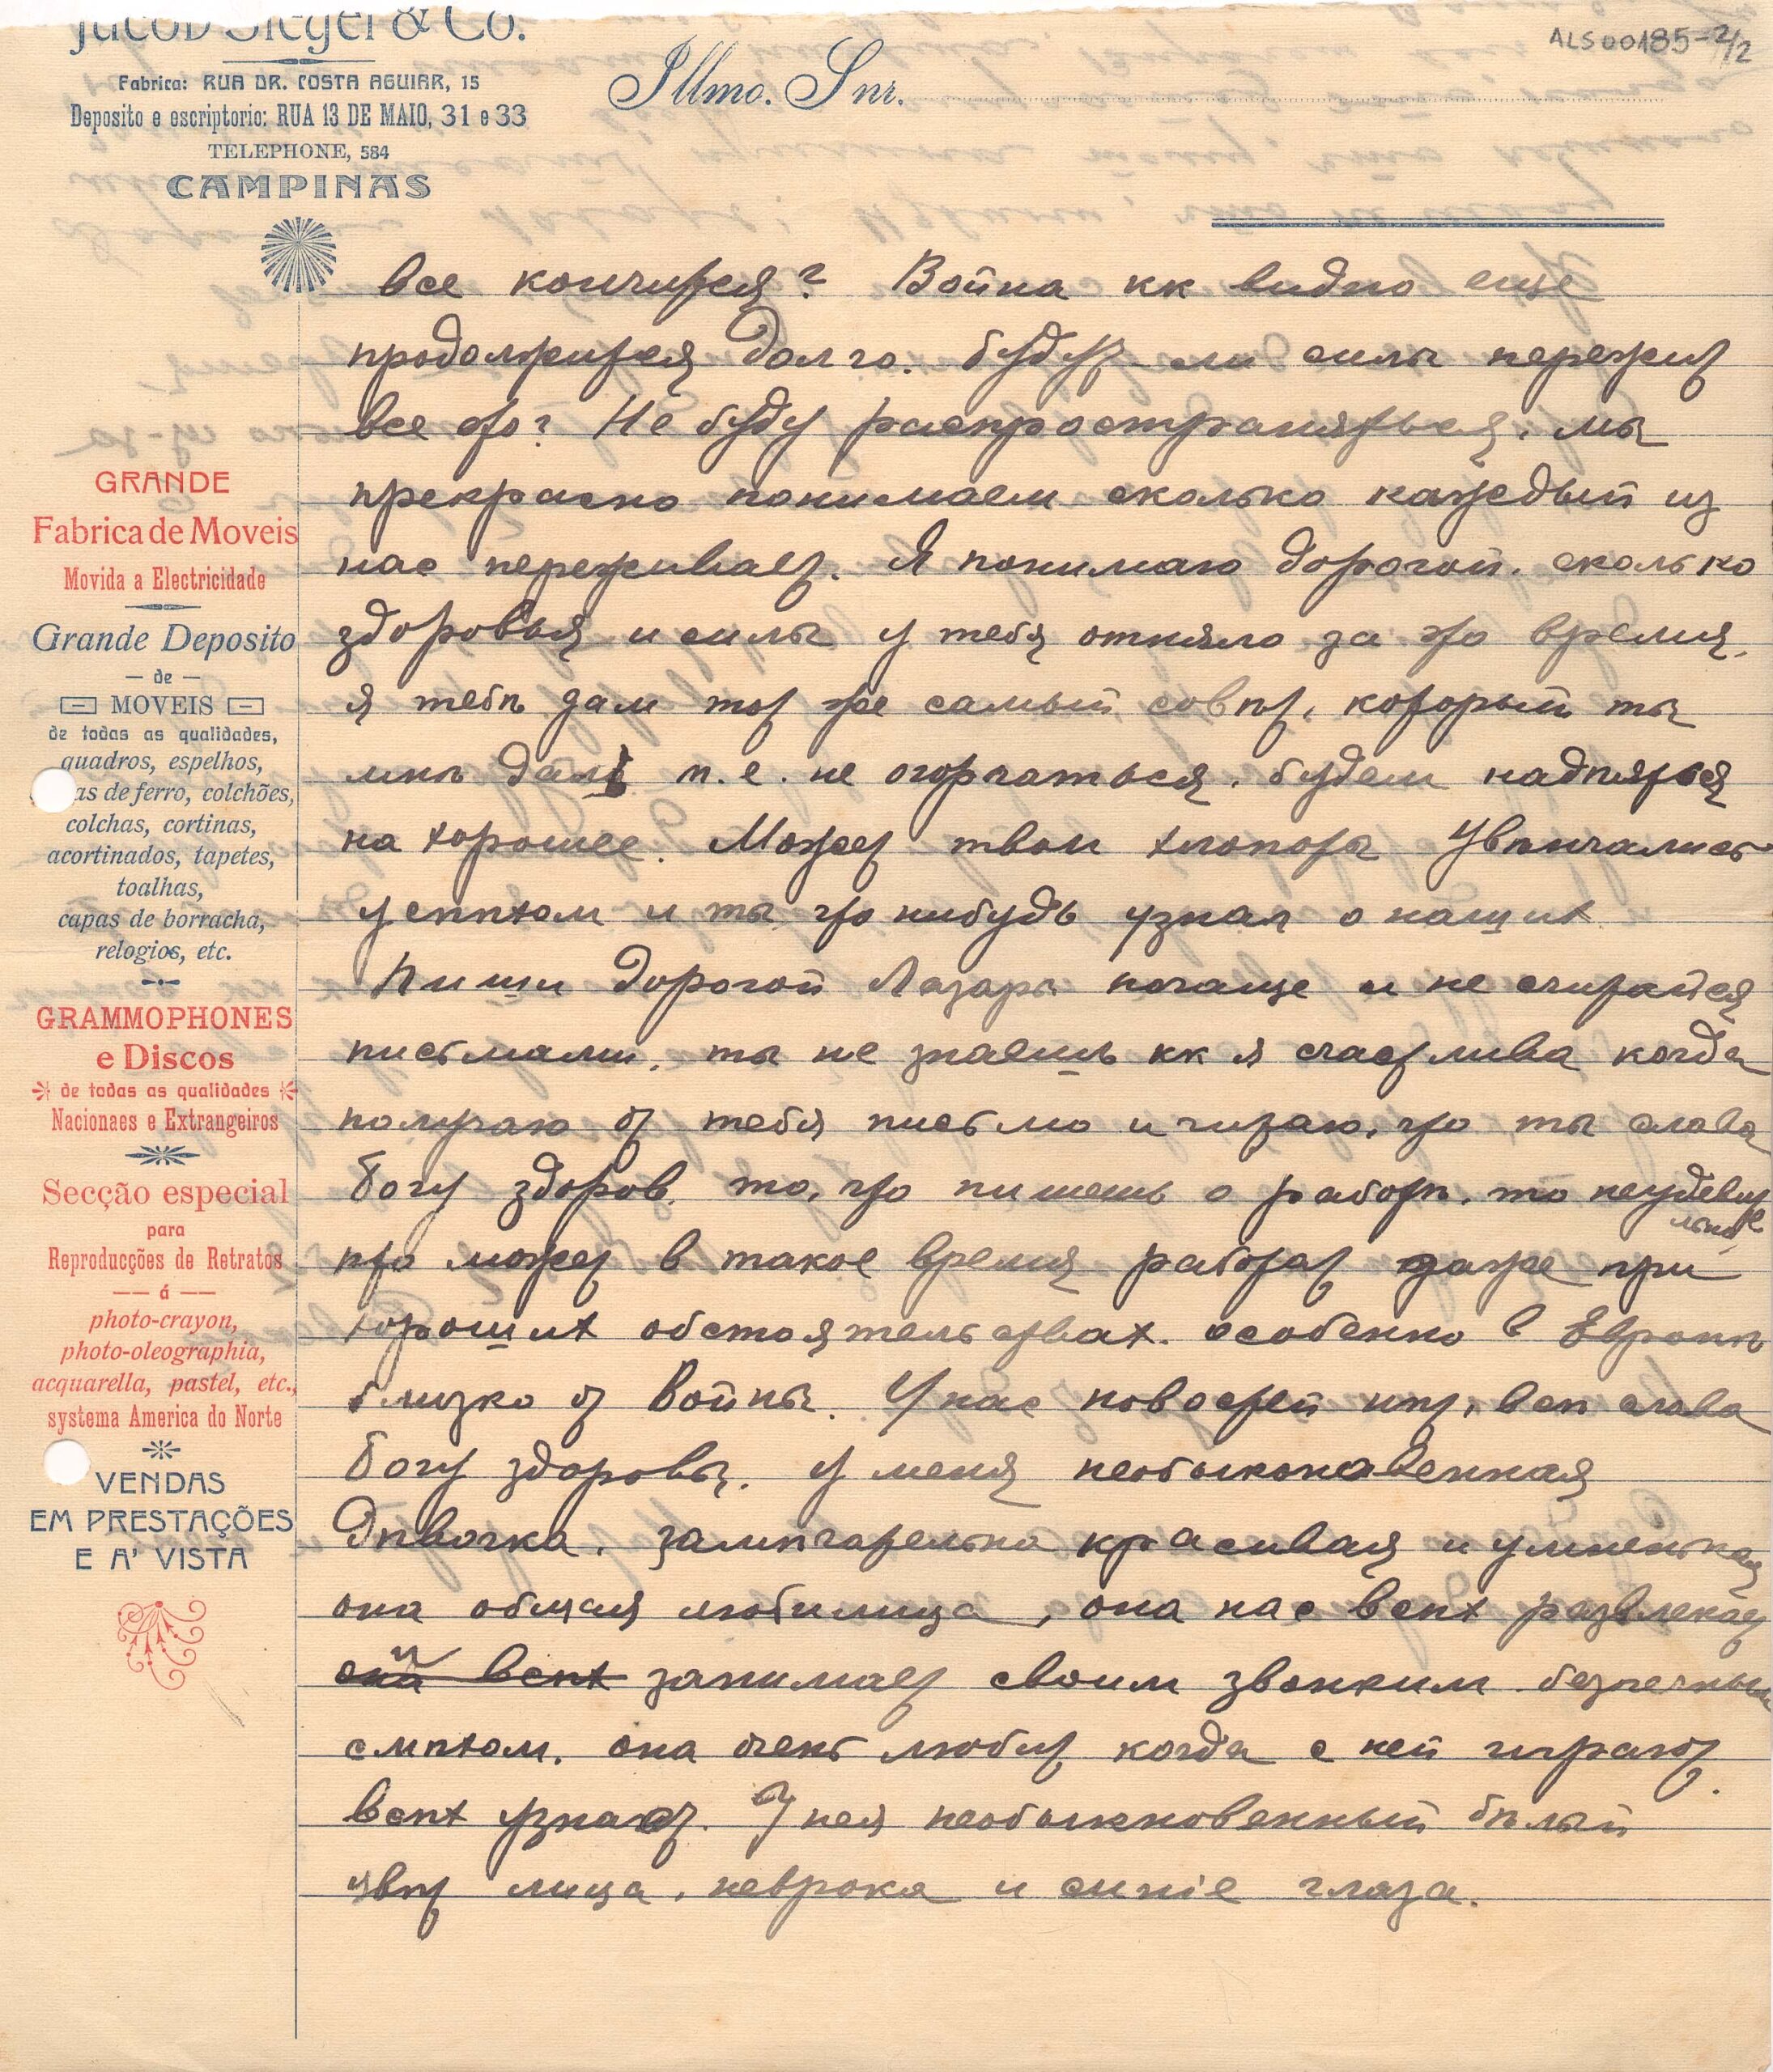 Jacob Siegel & Co.
Fabrica: RUA DR. COSTA AGUIAR, 15
Deposito e escriptorio: RUA 13 DE MAIO, 31 e 33
TELEPHONE, 584
CAMPINAS
Illmo. Snr.
ALS00185-2/2
GRANDE
Fabrica de Moveis
Movida a Electricidade
Grande Deposito
— de —
MOVEIS
de todas as qualidades,
quadros, espelhos,
as de ferro, colchões,
colchas, cortinas,
acortinados, tapetes,
toalhas,
capas de borracha,
relogios, etc.
GRAMMOPHONES
e Discos
de todas as qualidades
Nacionaes e Extrangeiros
Secção especial
para
Reproducções de Retratos
— á —
photo-crayon,
photo-oleographia,
acquarella, pastel, etc.,
systema America do Norte
VENDAS
EM PRESTAÇÕES
E A' VISTA
все кончится? Война кк видно еще
продолжится долго. будут-ли силы пережит
все это? Не буду распространяться. мы
прекрасно понимаем сколько каждый из
нас переживает. Я понимаю дорогой. сколько
здоровья и силы у тебя отняло за это время.
я тебѣ дам тот же самый совѣт, который ты
мнѣ дал т.е. не огорчаться. будем надѣяться
на хорошее. Может твои хлопоты увѣнчались
успѣхом и ты что нибудь узнал о наших
Пиши дорогой Лазарь почаще и не считайся
письмами. ты не знаешь кк я счастлива когда
получаю от тебя письмо и читаю, что ты слава
богу здоров. то, что пишешь о работѣ. то неудевит
льное
кто может в такое время работат даже при
хороших обстоятельствах. особенно в Европѣ
близко от войны. У нас новостей нѣт, всѣ слава
богу здоровы. у меня необыкновенная
дѣвочка. замѣчательно красивая и умненькая
она общая любимица, она нас всѣх развлекает
и занимает своим звонким безпечным
смѣхом. она очень любит когда с ней играют.
всѣх узнает. У нея необыкновенный бѣлый
цвѣт лица, невроко и синіе глаза.